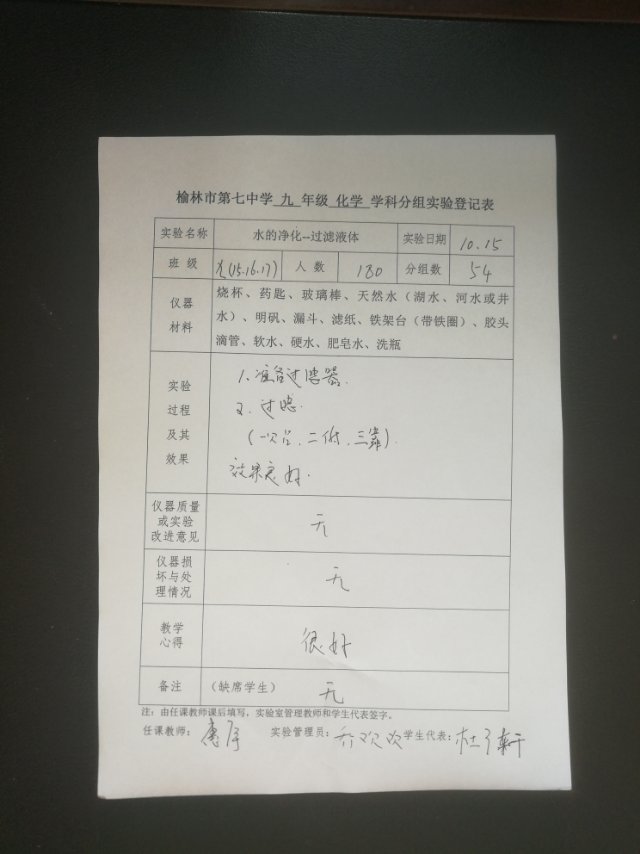 榆林市第七中学 九 年级 化学 学科分组实验登记表
实验名称 水的净化--过滤液体 实验日期 10.15
班 级 九(15.16.17) 人 数 180 分组数 54
仪器
材料
烧杯、药匙、玻璃棒、天然水（湖水、河水或井
水）、明矾、漏斗、滤纸、铁架台（带铁圈）、胶头
滴管、软水、硬水、肥皂水、洗瓶
实验
过程
及其
效果
1、准备过滤器.
2、过滤.
（一贴、二低、三靠）.
效果良好.
仪器质量
或实验
改进意见
无
仪器损
坏与处
理情况
无
教学
心得
很好
备注 （缺席学生） 无
注：由任课教师课后填写，实验室管理教师和学生代表签字。
任课教师： 实验管理员： 乔欢欢 学生代表： 杜子轩